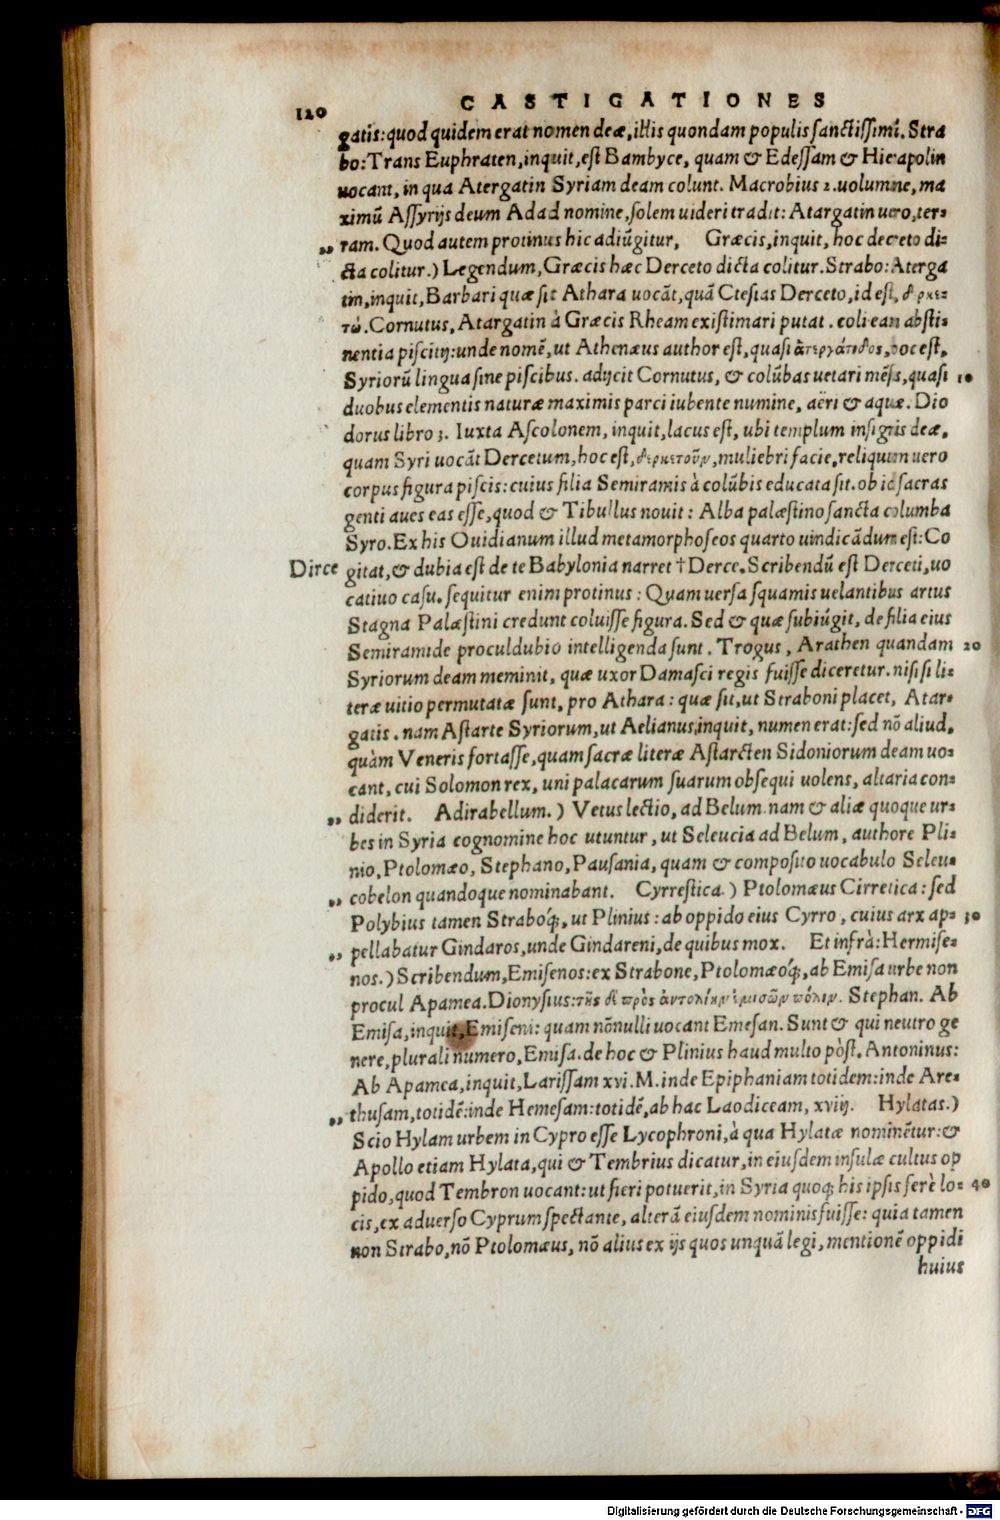 120
CASTIGATIONES
gatis: quod quidem erat nomen deæ, illis quondam populis sanctissimi. Stra
bo: Trans Euphraten, inquit, est Bambyce, quam & Edessam & Hierapolin
uocant, in qua Atergatin Syriam deam colunt. Macrobius 2. uolumine, ma
ximũ Assyrijs deum Adad nomine, solem uideri tradit: Atargatin uero, ter-
„ ram. Quod autem protinus hic adiũgitur, Græcis, inquit, hoc decreto di-
cta colitur.) Legendum, Græcis hæc Derceto dicta colitur. Strabo: Aterga
tin, inquit, Barbari quæ sit Athara uocãt, quã Ctesias Derceto, id est, δερκε-
τώ. Cornutus, Atargatin à Græcis Rheam existimari putat. coli eam absti-
nentia pisciũ: unde nomẽ, ut Athenæus author est, quasi ἀτεργάτιδος, hoc est,
Syriorũ lingua sine piscibus. adijcit Cornutus, & colũbas uetari mẽsis, quasi 10
duobus elementis naturæ maximis parci iubente numine, aëri & aquæ. Dio
dorus libro 3. Iuxta Ascolonem, inquit, lacus est, ubi templum insignis deæ,
quam Syri uocãt Dercetum, hoc est, δερκετοῦν, muliebri facie, reliquum uero
corpus figura piscis: cuius filia Semiramis à colũbis educata sit. ob id sacras
genti aues eas esse, quod & Tibullus nouit: Alba palæstino sancta columba
Syro. Ex his Ouidianum illud metamorphoseos quarto uindicãdum est: Co
Dirce gitat, & dubia est de te Babylonia narret † Derce. Scribendũ est Derceti, uo
catiuo casu. sequitur enim protinus: Quam uersa squamis uelantibus artus
Stagna Palæstini credunt coluisse figura. Sed & quæ subiũgit, de filia eius
Semiramide proculdubio intelligenda sunt. Trogus, Arathen quandam 20
Syriorum deam meminit, quæ uxor Damasci regis fuisse diceretur. nisi si li-
teræ uitio permutatæ sunt, pro Athara: quæ sit, ut Straboni placet, Atar-
gatis. nam Astarte Syriorum, ut Aelianus, inquit, numen erat: sed nõ aliud,
quàm Veneris fortasse, quam sacræ literæ Astarcten Sidoniorum deam uo-
cant, cui Solomon rex, uni palacarum suarum obsequi uolens, altaria con-
„ diderit. Adirabellum.) Vetus lectio, ad Belum. nam & aliæ quoque ur-
bes in Syria cognomine hoc utuntur, ut Seleucia ad Belum, authore Pli-
nio, Ptolomæo, Stephano, Pausania, quam & composito uocabulo Seleu-
„ cobelon quandoque nominabant. Cyrrestica.) Ptolomæus Cirretica: sed
Polybius tamen Straboq́;, ut Plinius: ab oppido eius Cyrro, cuius arx ap- 30
„ pellabatur Gindaros, unde Gindareni, de quibus mox. Et infrà: Hermise-
nos.) Scribendum, Emisenos: ex Strabone, Ptolomæoq́;, ab Emisa urbe non
procul Apamea. Dionysius: τῆς δὲ πρὸς ἀντολίην ἐμισῶν πόλιν. Stephan. Ab
Emisa, inquit, Emiseni: quam nõnulli uocant Emesan. Sunt & qui neutro ge
nere, plurali numero, Emisa. de hoc & Plinius haud multo pòst. Antoninus:
Ab Apamea, inquit, Larissam xvi. M. inde Epiphaniam totidem: inde Are-
„ thusam, totidẽ: inde Hemesam: totidẽ, ab hac Laodiceam, xviij. Hylatas.)
Scio Hylam urbem in Cypro esse Lycophroni, à qua Hylatæ nominẽtur: &
Apollo etiam Hylata, qui & Tembrius dicatur, in eiusdem insulæ cultus op
pido, quod Tembron uocant: ut fieri potuerit, in Syria quoq; his ipsis ferè lo- 40
cis, ex aduerso Cyprum spectante, alterã eiusdem nominis fuisse: quia tamen
non Strabo, nõ Ptolomæus, nõ alius ex ijs quos unquã legi, mentionẽ oppidi
huius
Digitalisierung gefördert durch die Deutsche Forschungsgemeinschaft - DFG